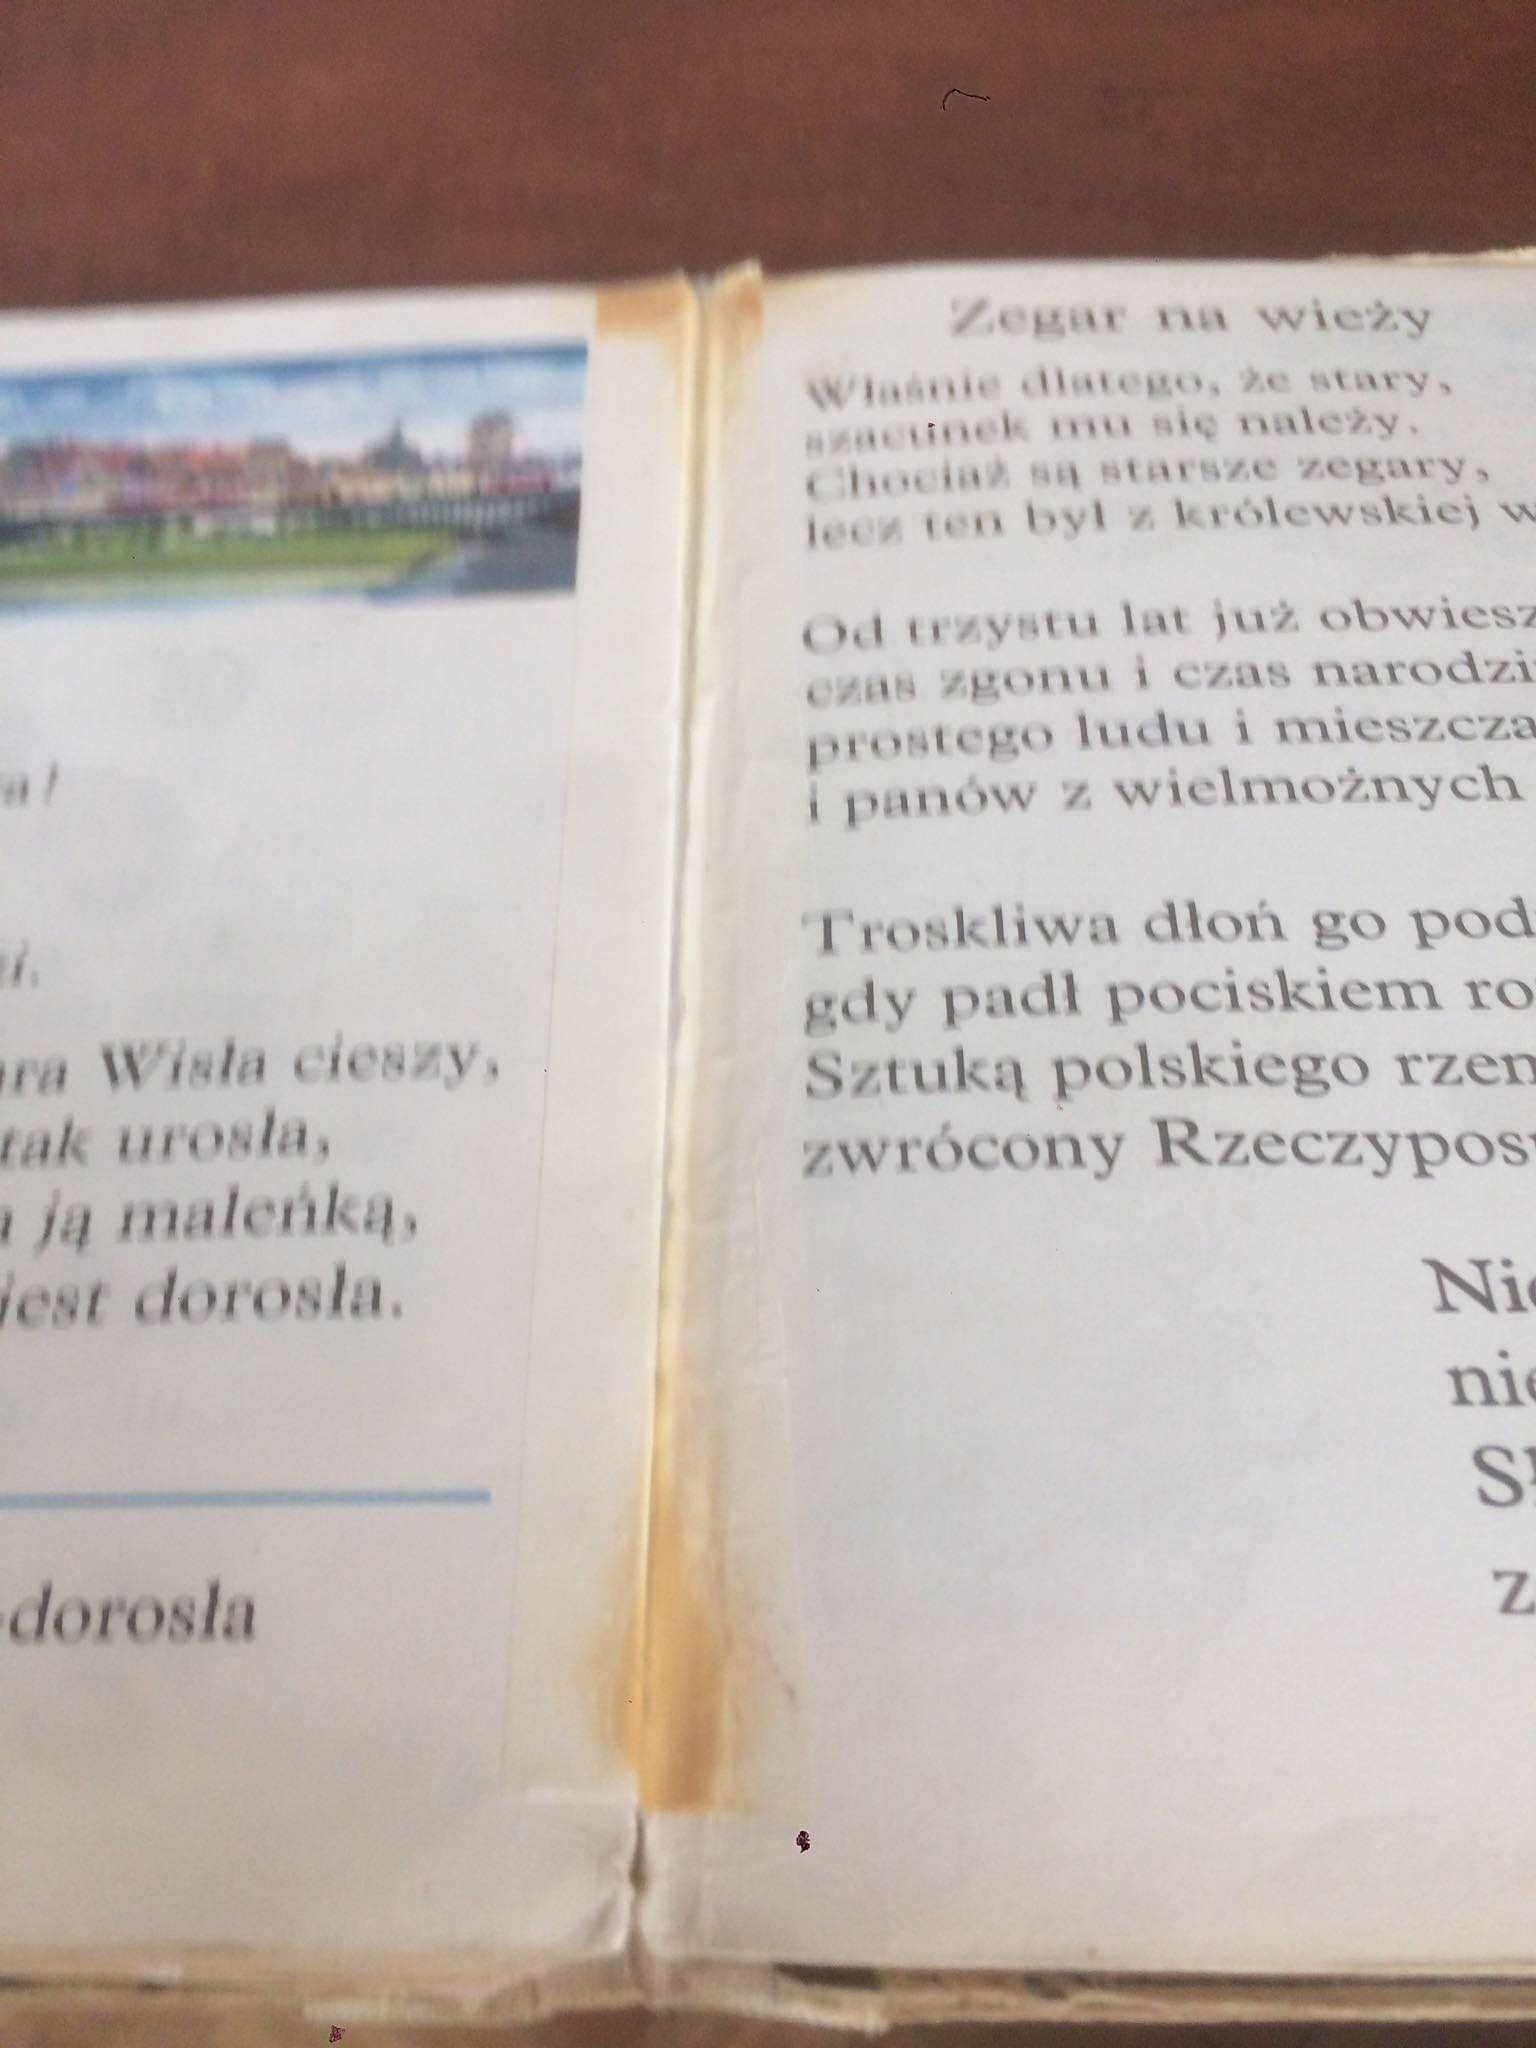 ra!
ara Wisła cieszy,
tak urosła,
ją maleńką,
jest dorosła.
-dorosła
Zegar na wieży
Właśnie dlatego, że stary,
szacunek mu się należy.
Chociaż są starsze zegary,
lecz ten był z królewskiej w
Od trzystu lat już obwiesz
czas zgonu i czas narodzi
prostego ludu i mieszcza
i panów z wielmożnych
Troskliwa dłoń go pod
gdy padł pociskiem ro
Sztuką polskiego rzem
zwrócony Rzeczyposp
Nie
nie
Sł
z